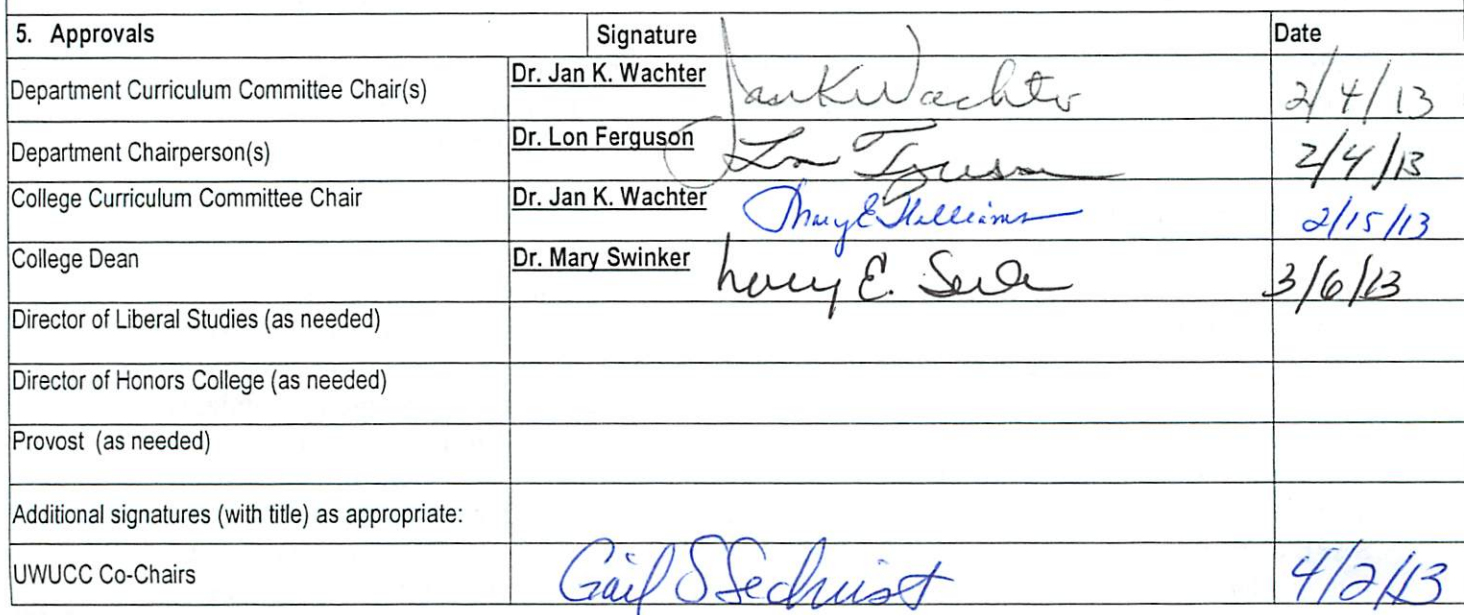 5. Approvals Signature Date
Department Curriculum Committee Chair(s) Dr. Jan K. Wachter Jan K Wachter 2/4/13
Department Chairperson(s) Dr. Lon Ferguson Lon Ferguson 2/4/13
College Curriculum Committee Chair Dr. Jan K. Wachter Mary E Williams 2/15/13
College Dean Dr. Mary Swinker E. 3/6/13
Director of Liberal Studies (as needed)
Director of Honors College (as needed)
Provost (as needed)
Additional signatures (with title) as appropriate:
UWUCC Co-Chairs Gail S Sechrist 4/2/13